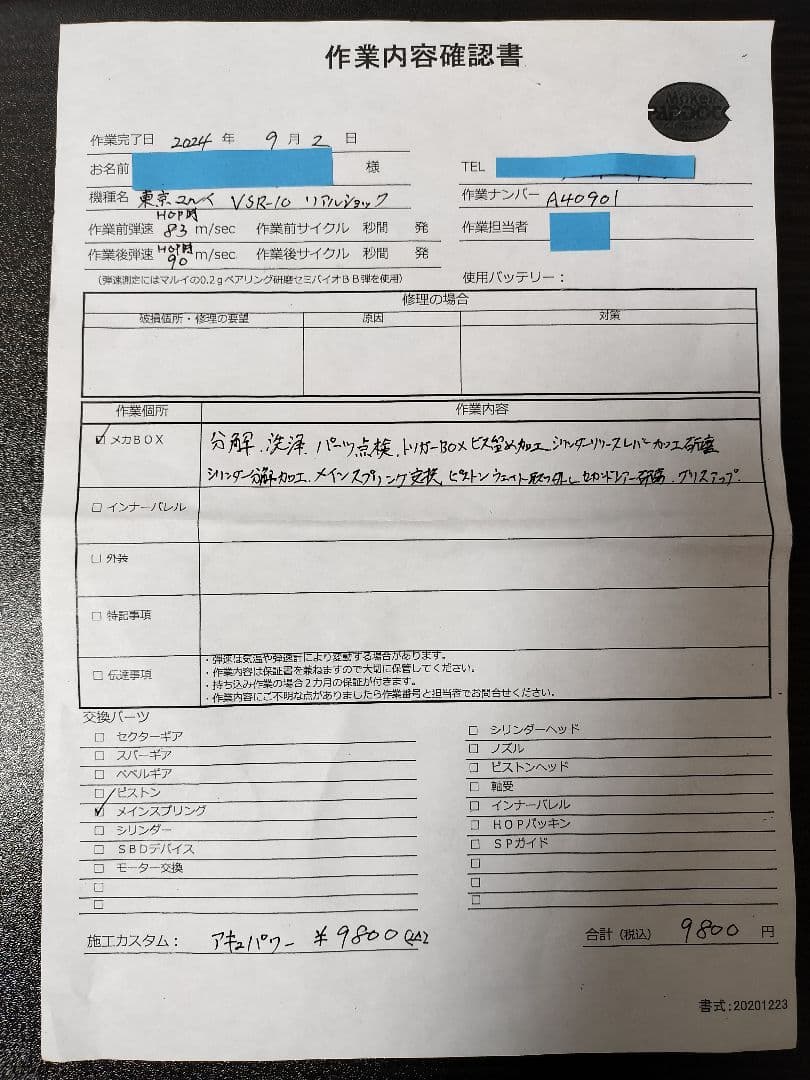 作業内容確認書
PADDOCK
作業完了日 2024 年 9 月 2 日
お名前 様
TEL
機種名 東京マルイ VSR-10 リアルショック
作業ナンバー A40901
作業前弾速 HOP時 83 m/sec 作業前サイクル 秒間 発
作業担当者
作業後弾速 HOP時 90 m/sec 作業後サイクル 秒間 発
(弾速測定にはマルイの0.2gベアリング研磨セミバイオBB弾を使用)
使用バッテリー：
修理の場合
破損個所・修理の要望 原因 対策
作業個所 作業内容
☑ メカBOX
分解、洗浄、パーツ点検、トリガーBOXビス留め加工、シリンダーリリースレバー加工研磨
シリンダー分解加工、メインスプリング交換、ピストンウェイト取り外し、セカンドシアー研磨、グリスアップ
□ インナーバレル
□ 外装
□ 特記事項
□ 伝達事項
・弾速は気温や弾速計により変動する場合があります。
・作業内容は保証書を兼ねますので大切に保管してください。
・持ち込み作業の場合2カ月の保証が付きます。
・作業内容にご不明な点がありましたら作業番号と担当者でお問合せください。
交換パーツ
□ セクターギア
□ スパーギア
□ ベベルギア
□ ピストン
☑ メインスプリング
□ シリンダー
□ SBDデバイス
□ モーター交換
□
□
□ シリンダーヘッド
□ ノズル
□ ピストンヘッド
□ 軸受
□ インナーバレル
□ HOPパッキン
□ SPガイド
□
□
□
施工カスタム： アキュパワー ¥9800
合計 (税込) 9800 円
書式:20201223